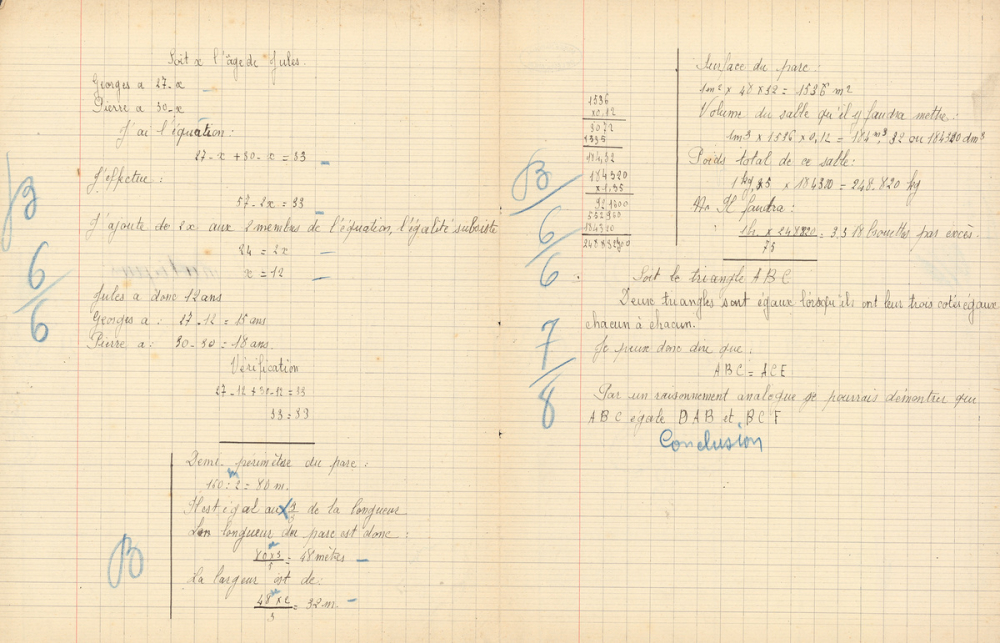 Soit x l'âge de Jules.
Georges a 27-x
Pierre a 30-x
J'ai l'équation:
27-x + 30-x = 33
J'effectue:
57-2x = 33
J'ajoute de 2x aux 2 membres de l'équation, l'égalité subsiste
24 = 2x
x = 12
Jules a donc 12 ans
Georges a: 27-12 = 15 ans
Pierre a: 30- = 18 ans.
Vérification
27-12 + 30-12 = 33
33 = 33
B
6/6
Demi-périmètre du parc:
160 : 2 = 80 m.
Il est égal aux de la longueur
La longueur du parc est donc:
80 m x 3 / 5 = 48 mètres
La largeur est de:
48 m x 2 / 3 = 32 m.
B
Surface du parc:
1m² x 48 x 32 = 1536 m²
Volume du sable qu'il y faudra mettre:
1m³ x 1536 x 0,12 = 184 m³, 32 ou 184320 dm³
Poids total de ce sable:
1 kg,35 x 184320 = 248 820 kg
Il faudra:
1b. x 248820 / 75 = 3318 brouettes par excès.
1536
x0,12
3072
1536
184,32
184320
x1,35
921600
552960
184320
B
6/6
Soit le triangle ABC
Deux triangles sont égaux lorsqu'ils ont leur trois cotés égaux
chacun à chacun.
Je peux donc dire que:
ABC = ACE
Par un raisonnement analogue je pourrais démontrer que
ABC égale DAB et BCF
Conclusion
7/8